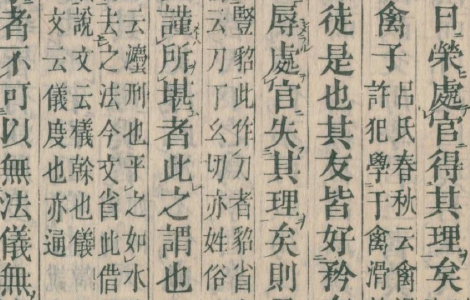 日榮處官得其理矣
禽子
呂氏春秋云禽
許犯學于禽滑
徒是也其友皆好矜
辱處官失其理矣則
豎貂此作刀者貂省
云刀丁幺切亦姓俗
謹所堪者此之謂也
云灋刑也平之如水
去之法今文省此借
說文云檥榦也儀
文云儀度也亦通
者不可以無法儀無